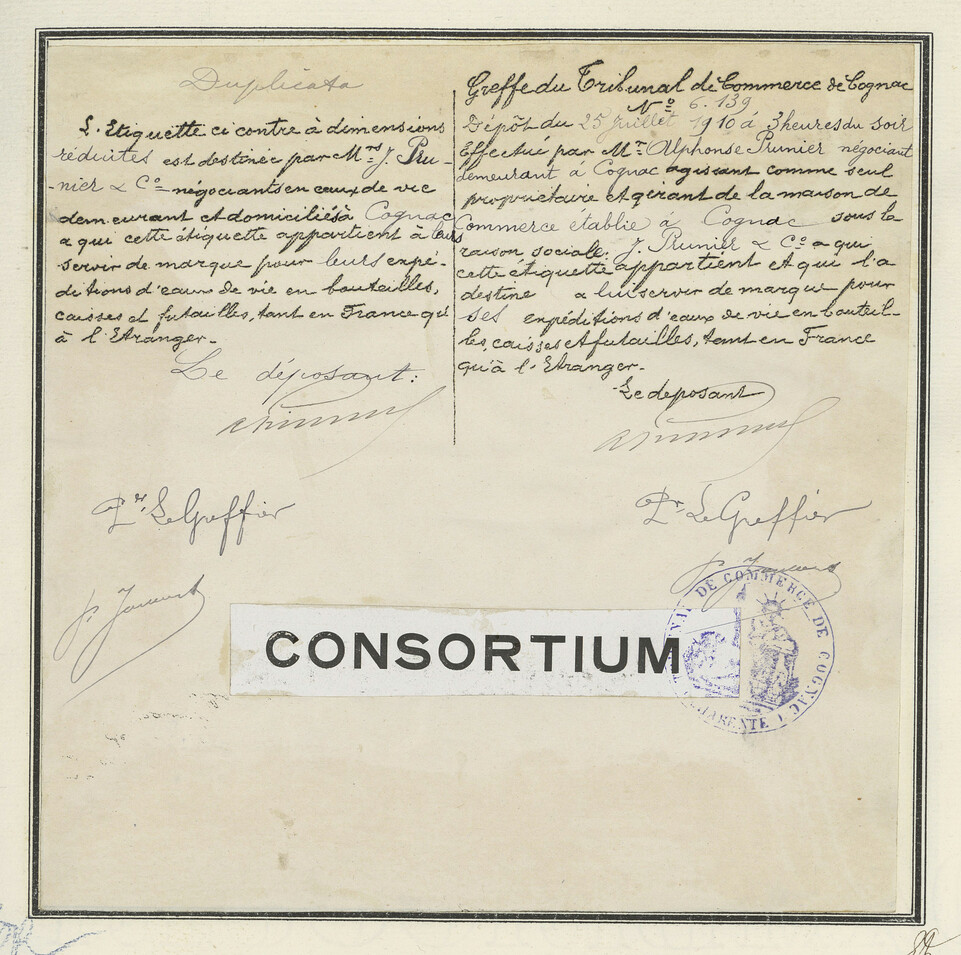 Duplicata
L'Etiquette ci contre à dimensions
réduites est destinée par Mrs J. Pru-
-nier & Co négociants en eaux de vie
demeurant et domiciliés à Cognac
a qui cette étiquette appartient à leurs
servir de marque pour leurs expé-
ditions d'eaux de vie en bouteilles,
caisses et futailles, tant en France qu'
à l'Etranger.
Le déposant:
Pr Le Greffier
Greffe du Tribunal de Commerce de Cognac
No 6.139
Dépôt du 25 juillet 1910 à 3 heures du soir
Effectué par Mr Alphonse Prunier négociant
demeurant à Cognac agissant comme seul
propriétaire et gérant de la maison de
Commerce établie à Cognac sous la
raison sociale: J. Prunier & Co a qui
cette étiquette appartient et qui l'a
destine a lui servir de marque pour
ses expéditions d'eaux de vie en bouteil-
les, caisses et futailles, tant en France
qu'à l'Etranger.
Le deposant
Pr Le Greffier
CONSORTIUM
DE COMMERCE DE COGNAC
CHARENTE